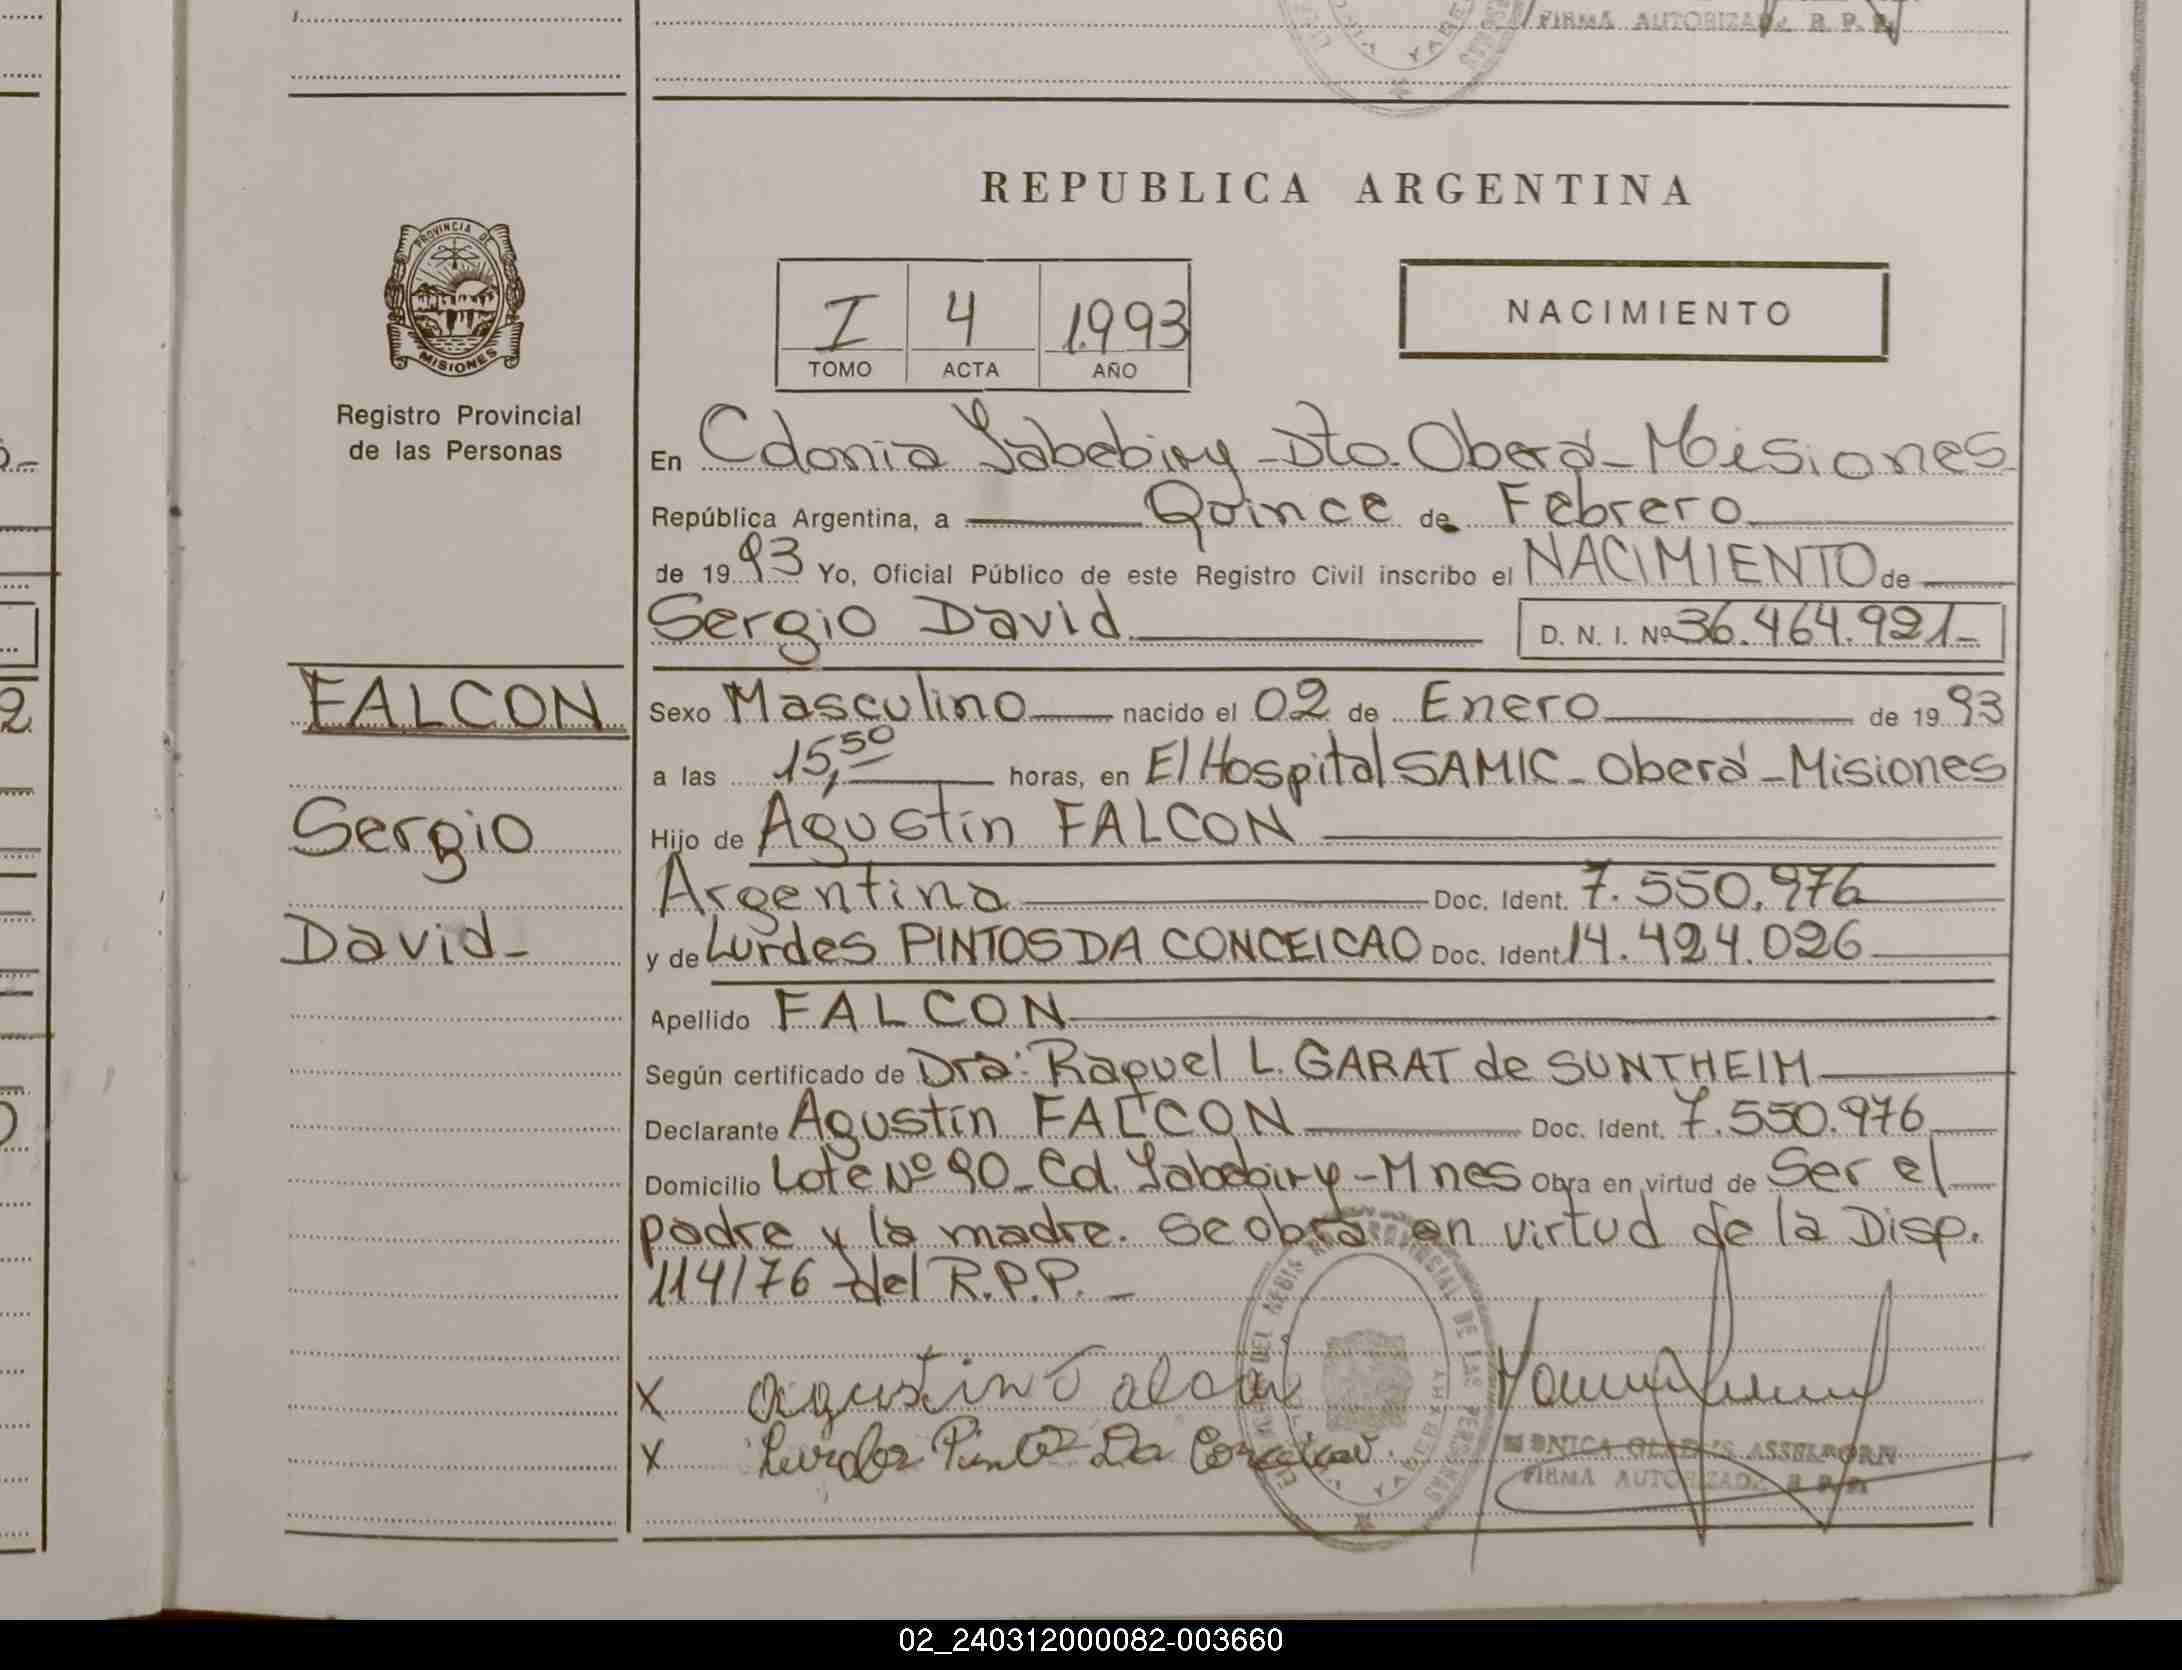 FIRMA AUTORIZADA R. P. P.
REPUBLICA ARGENTINA
PROVINCIA DE
MISIONES
Registro Provincial
de las Personas
I 4 1.993
TOMO ACTA AÑO
NACIMIENTO
En Colonia Yabebiry - Dto. Oberá - Misiones
República Argentina, a Quince de Febrero
de 1993 Yo, Oficial Público de este Registro Civil inscribo el NACIMIENTO de
Sergio David D. N. I. Nº 36.464.921-
FALCON
Sexo Masculino nacido el 02 de Enero de 1993
a las 15,50 horas, en El Hospital SAMIC - Oberá - Misiones
Sergio
Hijo de Agustín FALCON
Argentina Doc. Ident. 7.550.976
David-
y de Lurdes PINTOS DA CONCEICAO Doc. Ident. 14.424.026
Apellido FALCON
Según certificado de Dra: Raquel L. GARAT de SUNTHEIM
Declarante Agustín FALCON Doc. Ident. 7.550.976
Domicilio Lote Nº 90 - Col. Yabebiry - Mnes Obra en virtud de Ser el
padre y la madre. Se obra en virtud de la Disp.
114/76 del R.P.P. -
X agustin Falcon
X Lurdes Pinto Da Conceicao.
MONICA GLADYS ASSELBORN
FIRMA AUTORIZADA R. P. P.
02_240312000082-003660